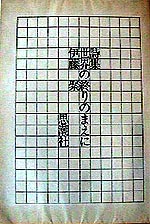 詩集
世界の終りのまえに
伊藤聚
思潮社